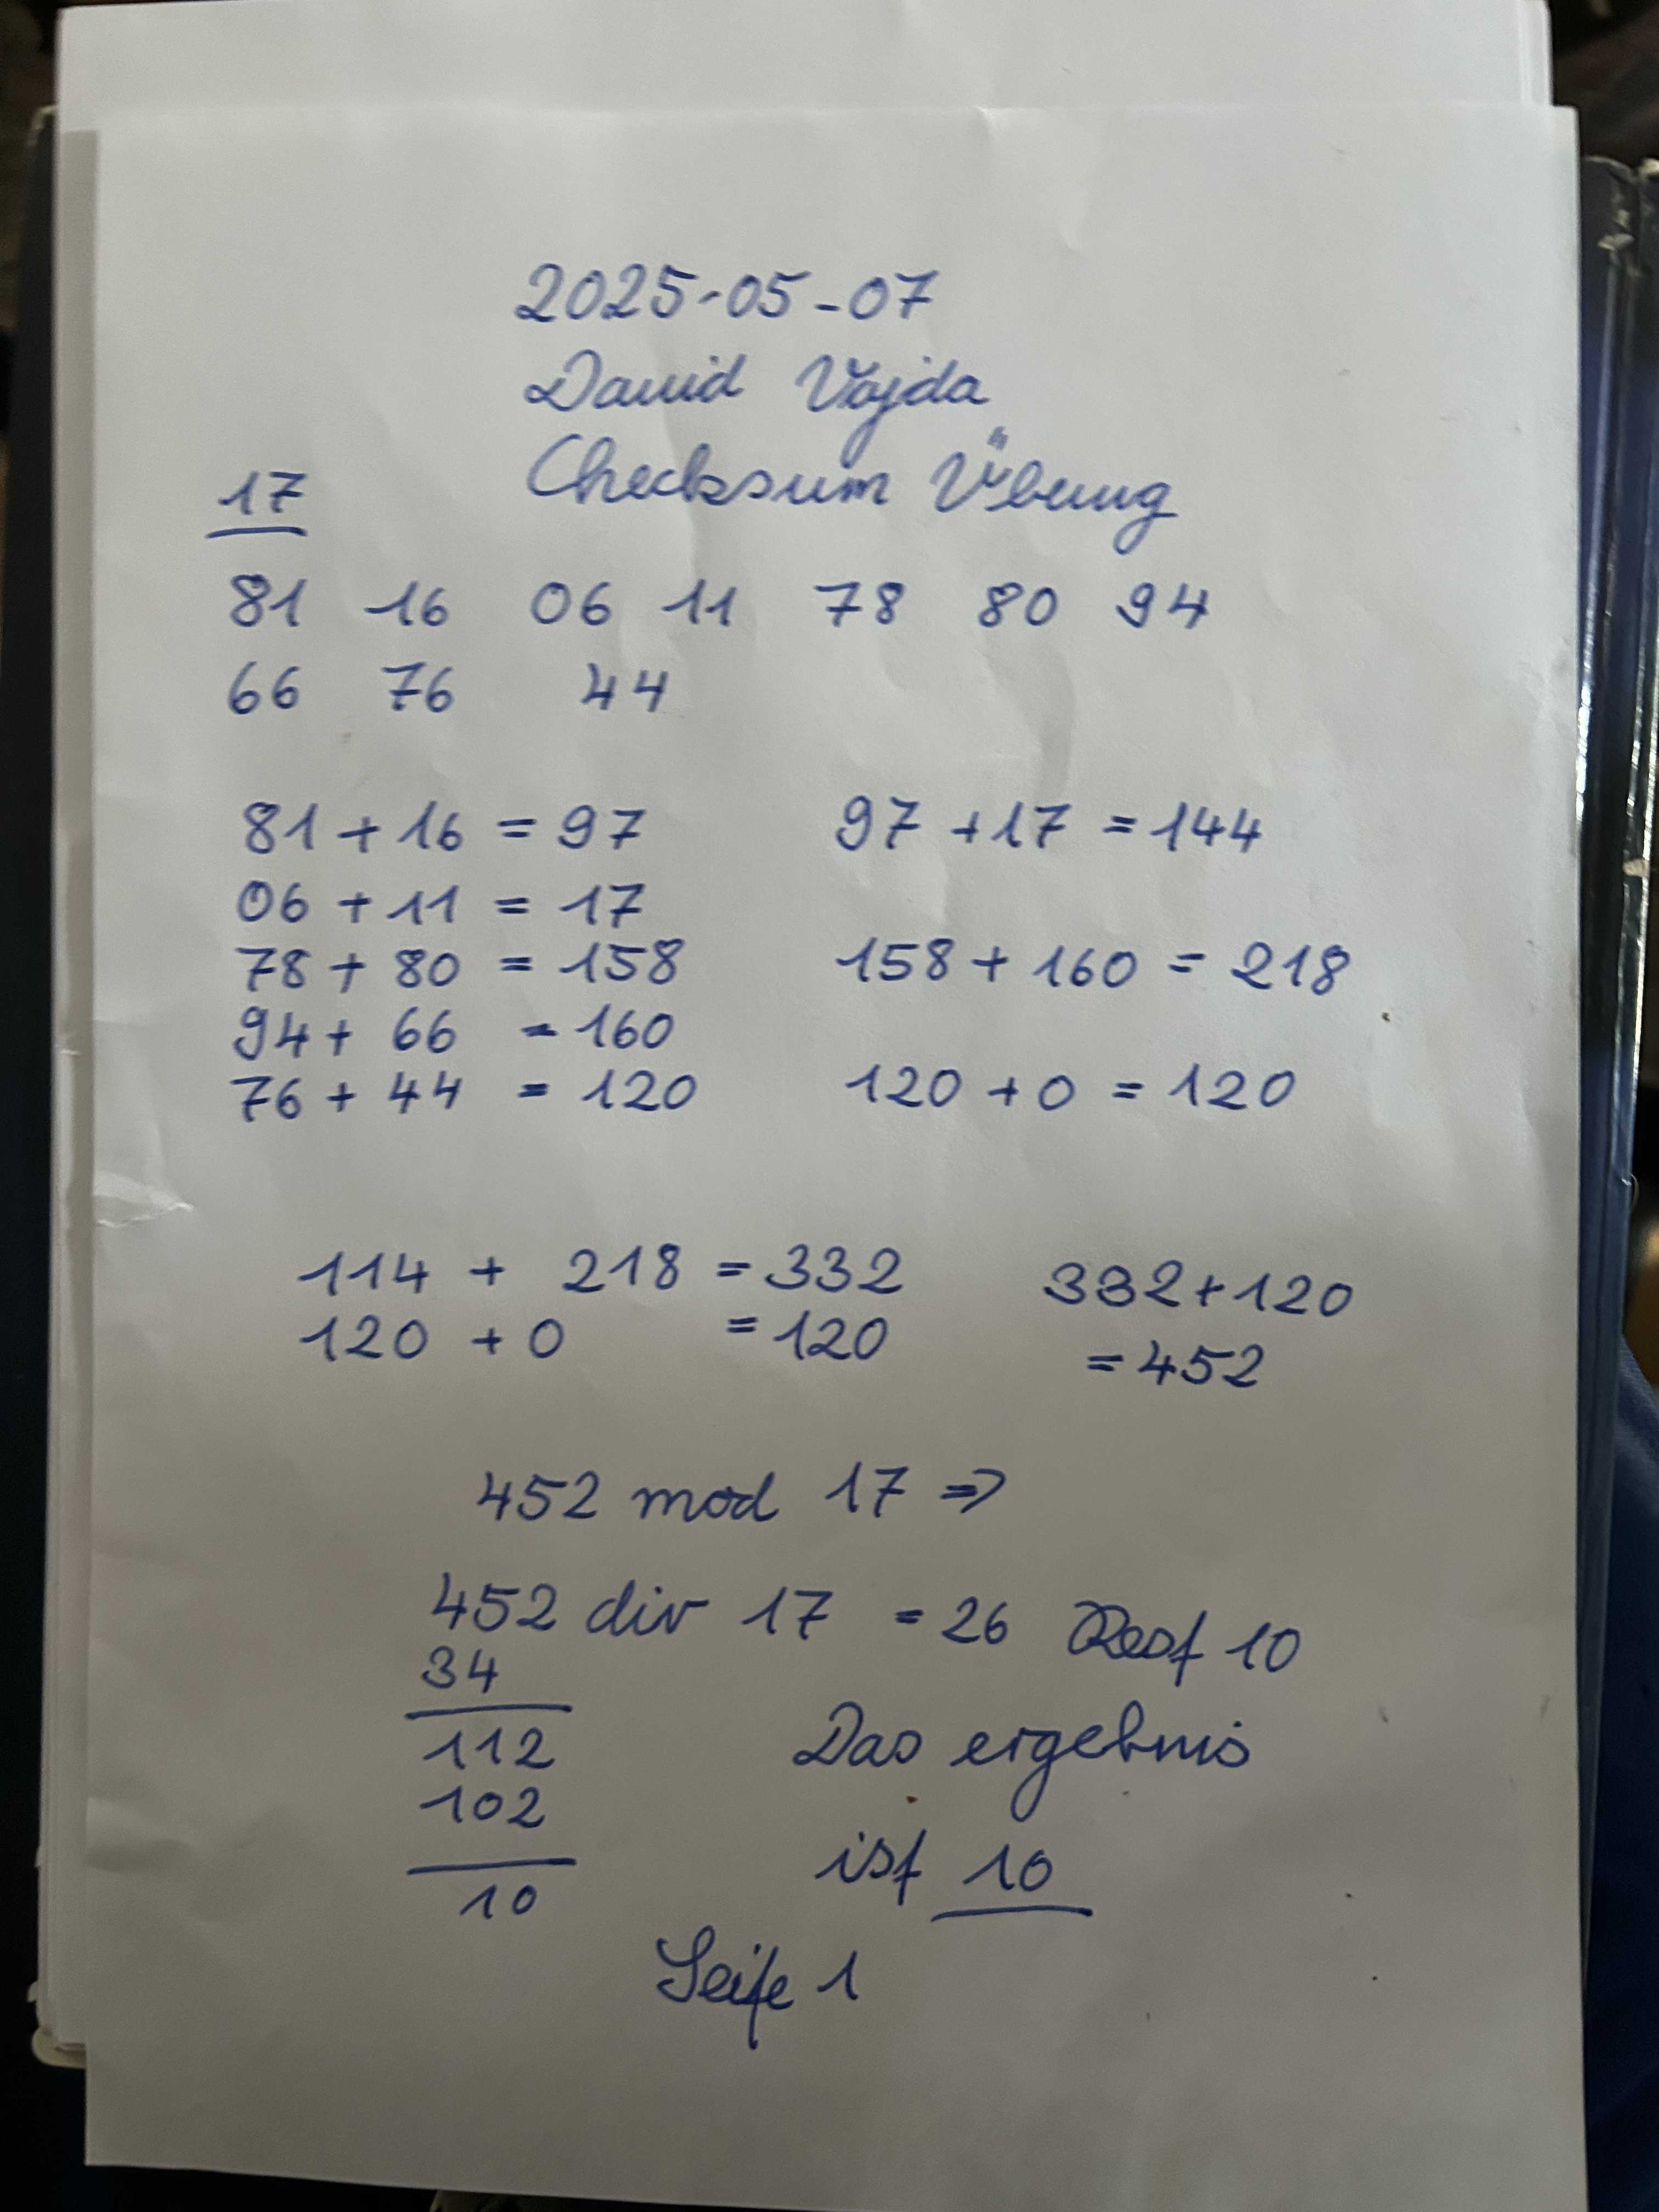 2025-05-07
David Vajda
Checksum Übung
17
81 16 06 11 78 80 94
66 76 44
81 + 16 = 97 97 + 17 = 144
06 + 11 = 17
78 + 80 = 158 158 + 160 = 218
94 + 66 = 160
76 + 44 = 120 120 + 0 = 120
114 + 218 = 332 332 + 120
120 + 0 = 120 = 452
452 mod 17 ⇒
452 div 17 = 26 Rest 10
34
112 Das ergebnis
102
ist 10
10
Seite 1